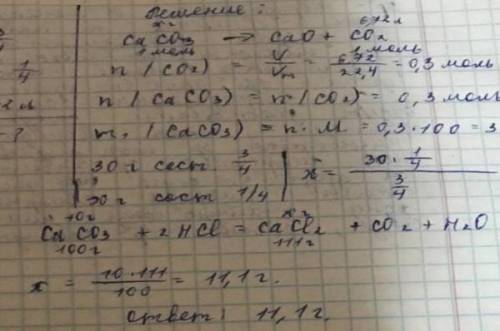 Решение:
x г 6,72 л
CaCO₃ → CaO + CO₂
1 моль 1 моль
1/4
n (CO₂) = V/Vm = 6,72/22,4 = 0,3 моль
n (CaCO₃) = n (CO₂) = 0,3 моль
m (CaCO₃) = n · M = 0,3 · 100 = 3
30 г сост. 3/4 | x = (30 · 1/4) / (3/4)
г сост 1/4
10 г x г
CaCO₃ + 2HCl = CaCl₂ + CO₂ + H₂O
100 г 111 г
x = 10·111/100 = 11,1 г.
ответ: 11,1 г.